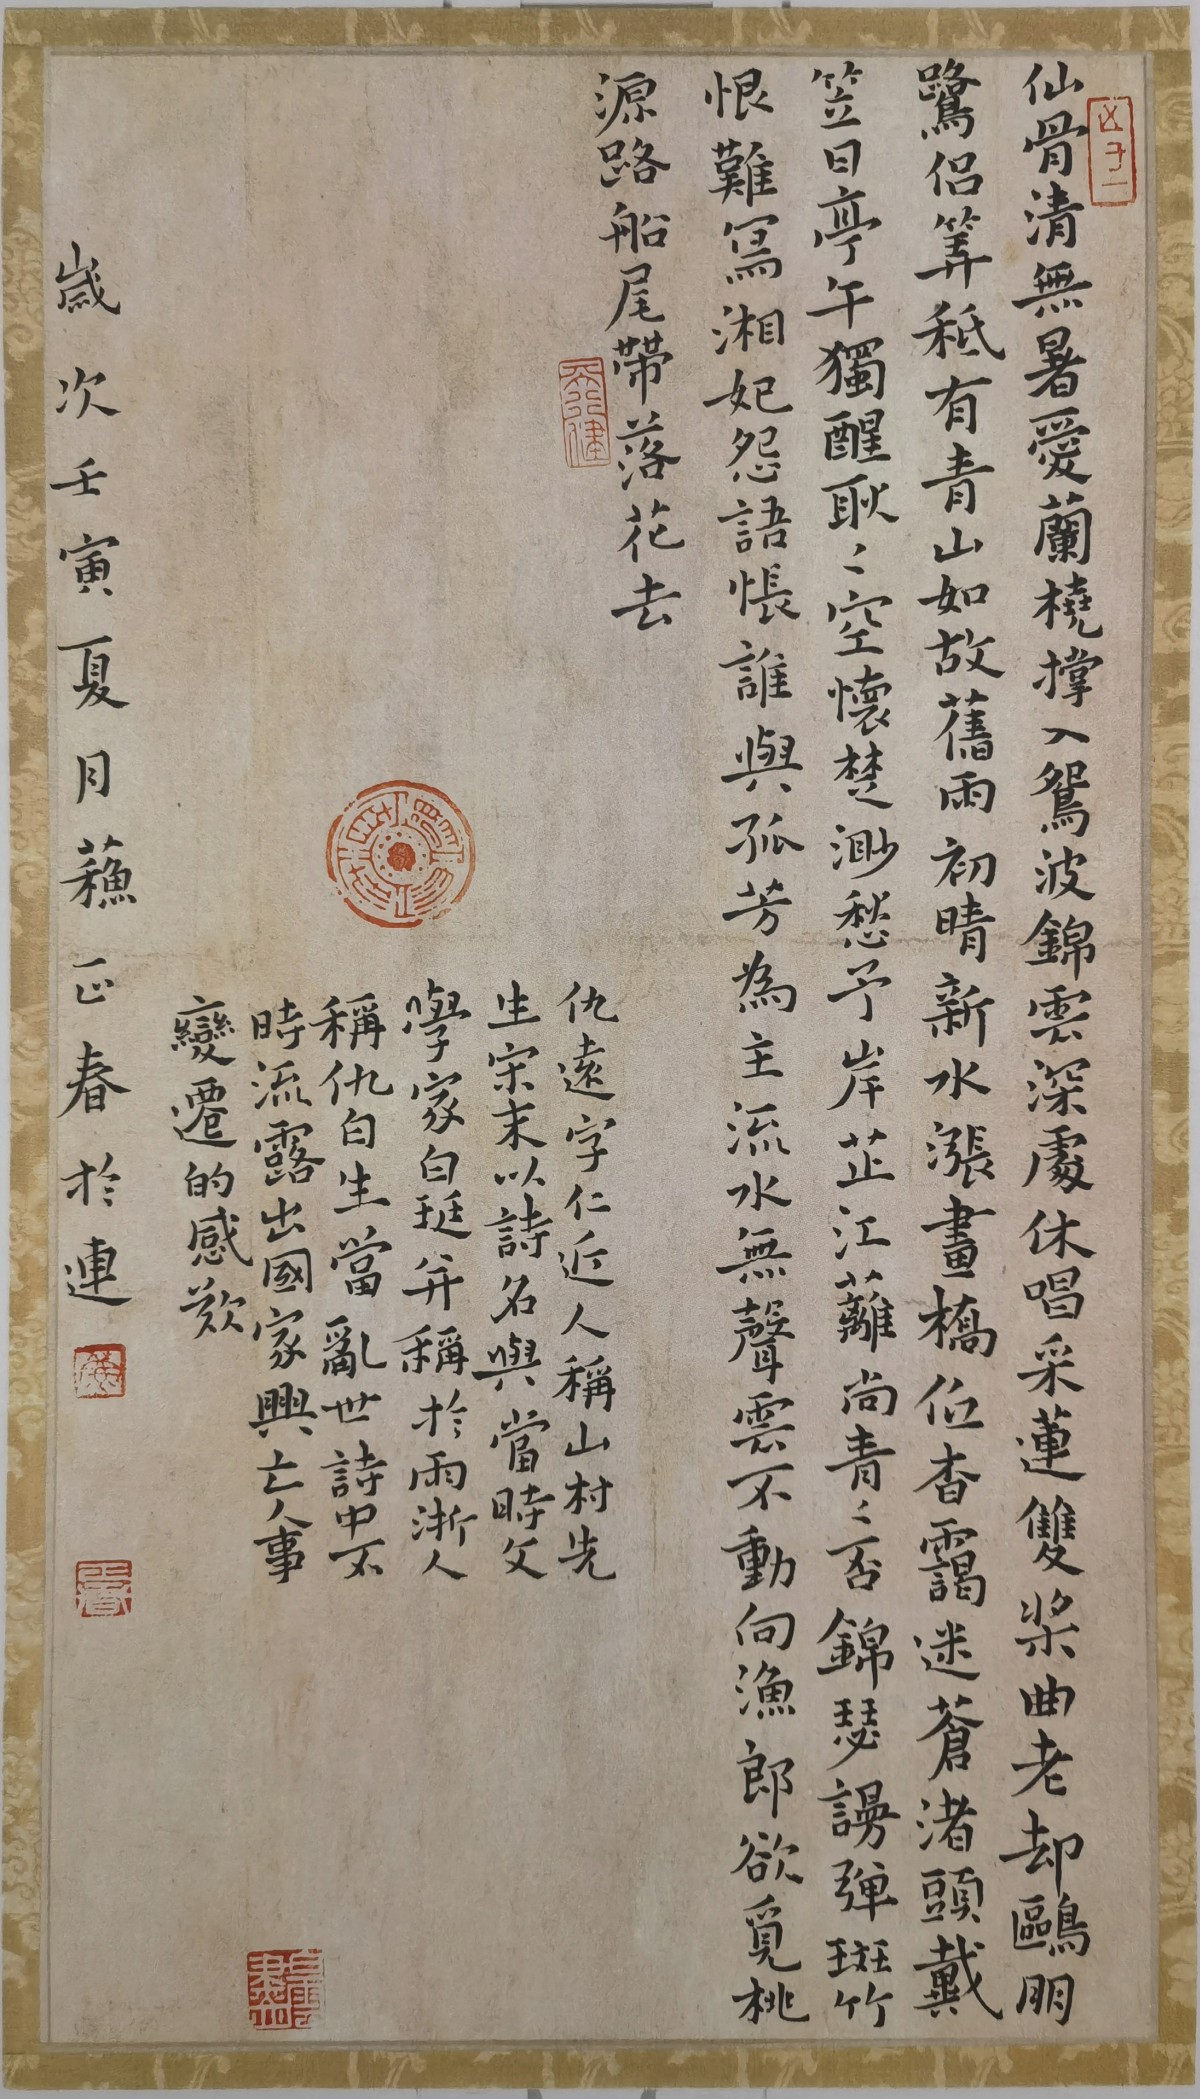 仙骨清無暑愛蘭橈撐入鴛波錦雲深處休唱采蓮雙槳曲老却鷗朋
鷺侶筭秪有青山如故舊雨初晴新水漲畫橋低杳靄迷蒼渚頭戴
笠日亭午獨醒耿〻空懷楚渺愁予岸芷江蘺尚青〻否錦瑟謾弹斑竹
恨難寫湘妃怨語悵誰與孤芳為主流水無聲雲不動向漁郎欲覓桃
源路船尾帶落花去
仇遠字仁近人稱山村先
生宋末以詩名與當時文
學家白珽并稱於兩浙人
稱仇白生當亂世詩中不
時流露出國家興亡人事
變遷的感歎
歲次壬寅夏月蘓正春於連